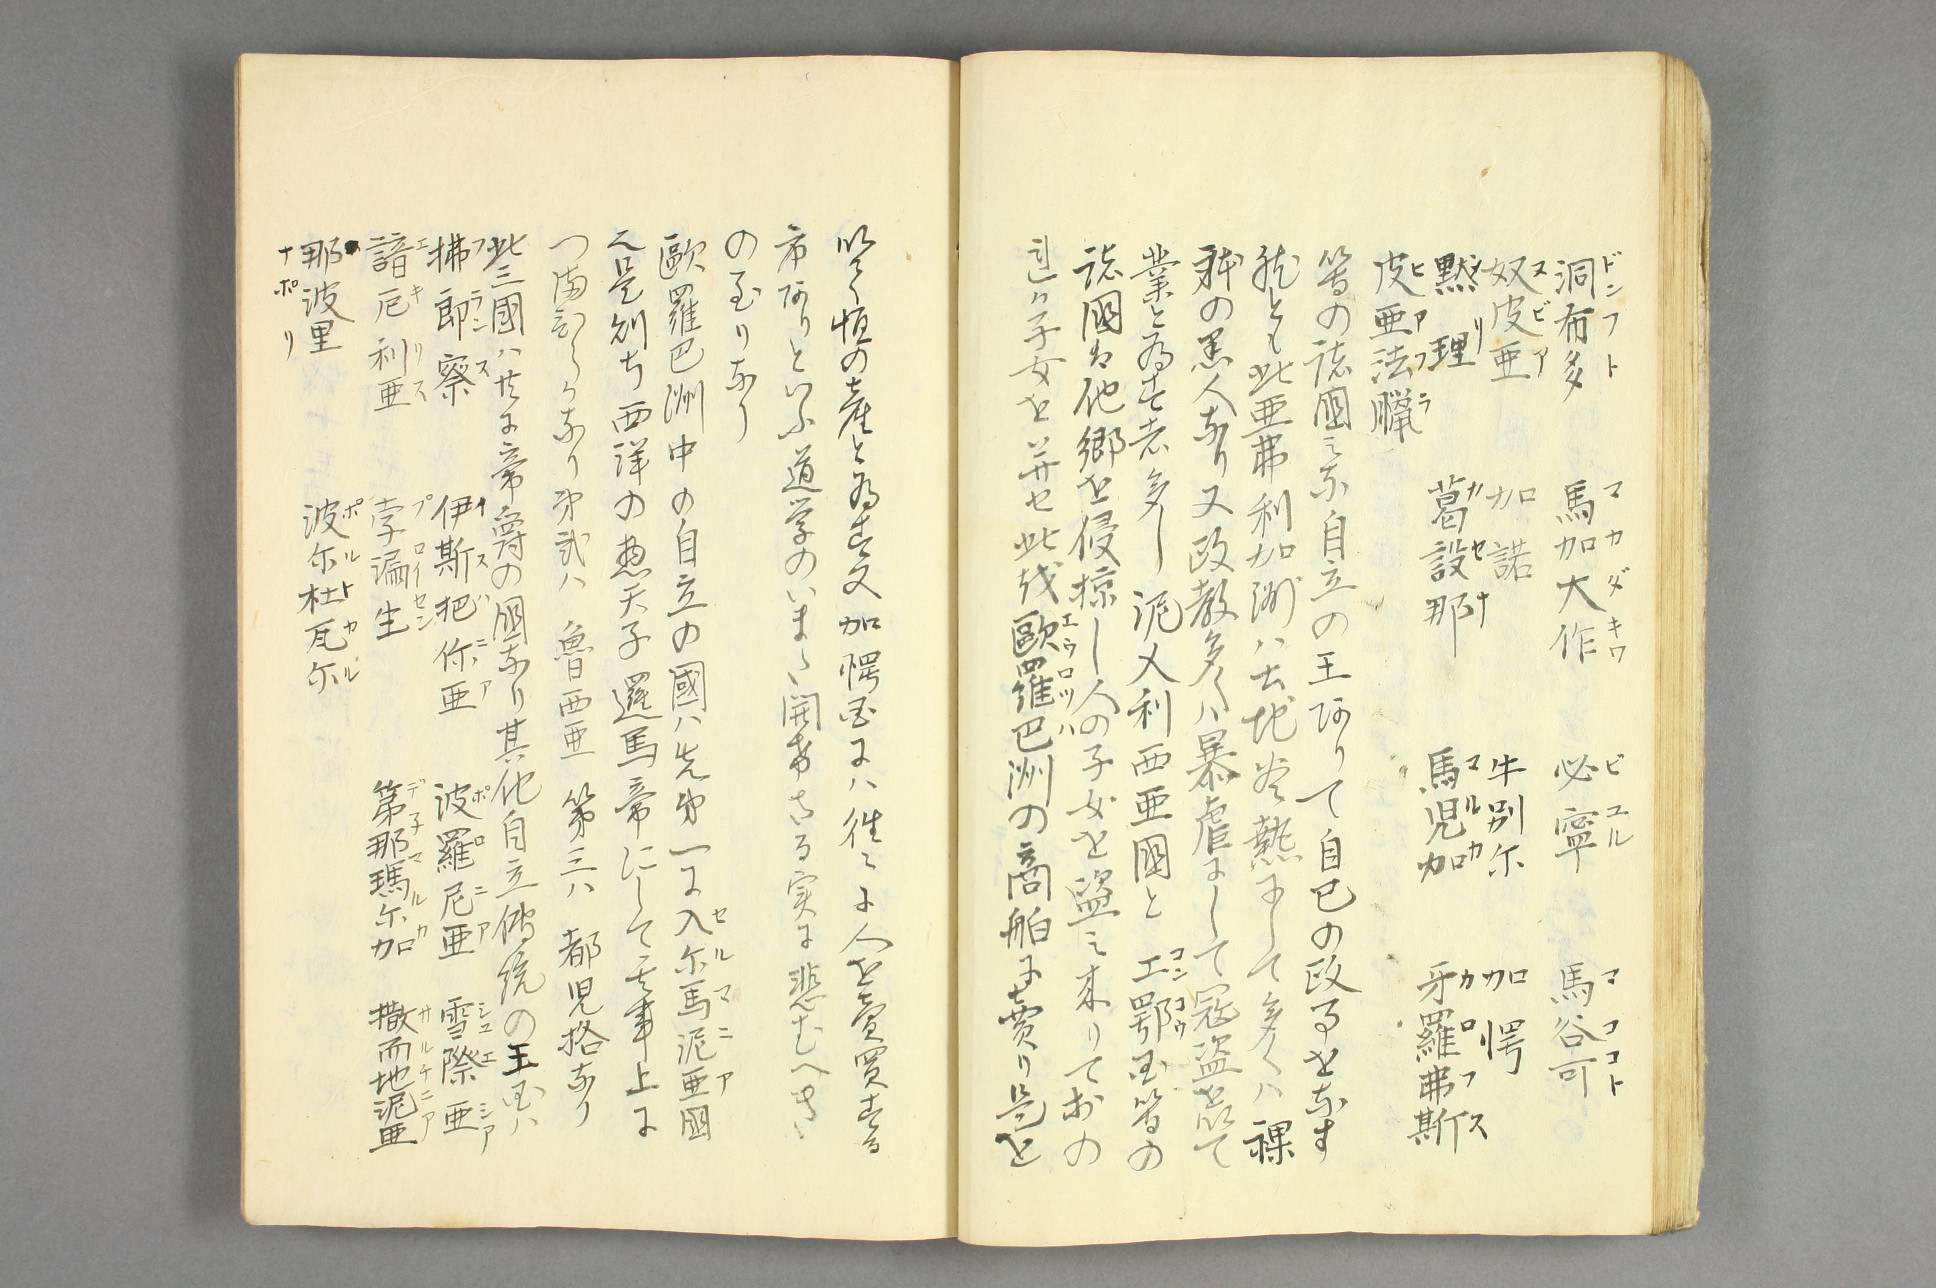 洞布多 馬加大作 必寧 馬谷可
奴皮亜 加諾 牛別尓 加愕
黙理 葛設那 馬児加 牙羅弗斯
皮亜法臘
等の諸國ミな自立の王ありて自己の政事をなす
然とも此亜弗利加洲ハ土地炎熱にして多くハ裸
躰の黒人なり又政教多くハ暴虐にして冦盗を以て
業と為す者多し 泥又利西亜國と 工鄂国等の
諸國は他郷を侵掠し人の子女を盗ミ来りておの
れか子女を并せ此を歐羅巴洲の商舶に賣り是を
以て恒の産と為す又加愕国にハ徃々に人を賣買する
市ありといふ道学のいまた開けさる実に悲むへき
の至りなり
歐羅巴洲中の自立の國ハ先第一に入尓馬泥亜國
是則ち西洋の惣天子邏馬帝にして其事上に
つまひらかなり第弐ハ 魯西亜 第三ハ 都児格なり
此三國ハ共に帝爵の國なり其他自立傳統の王国ハ
拂郎察 伊斯把你亜 波羅尼亜 雪際亜
諳厄利亜 孛漏生 第那瑪尓加 撒而地泥亜
那波里 波尓杜瓦尓